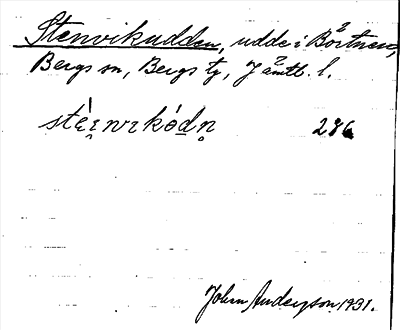 Stenvikudden, udde i Börtnen,
Bergs sn, Bergs tg, Jämtl. l.
286
John Anderson, 1931.